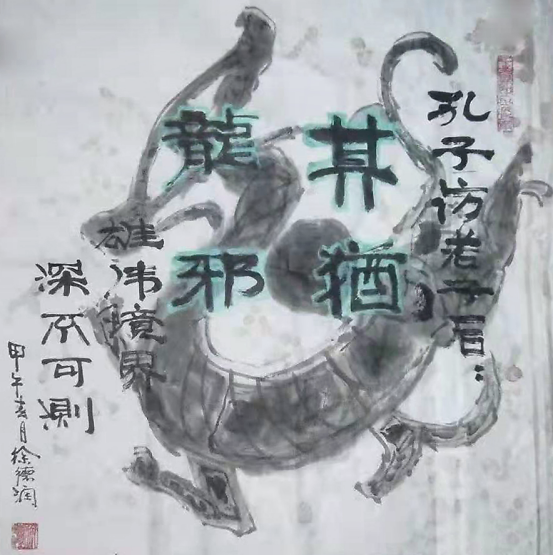 孔子访老子曰：
其猶
龍邪
雄伟境界
深不可測
甲午春月徐德润